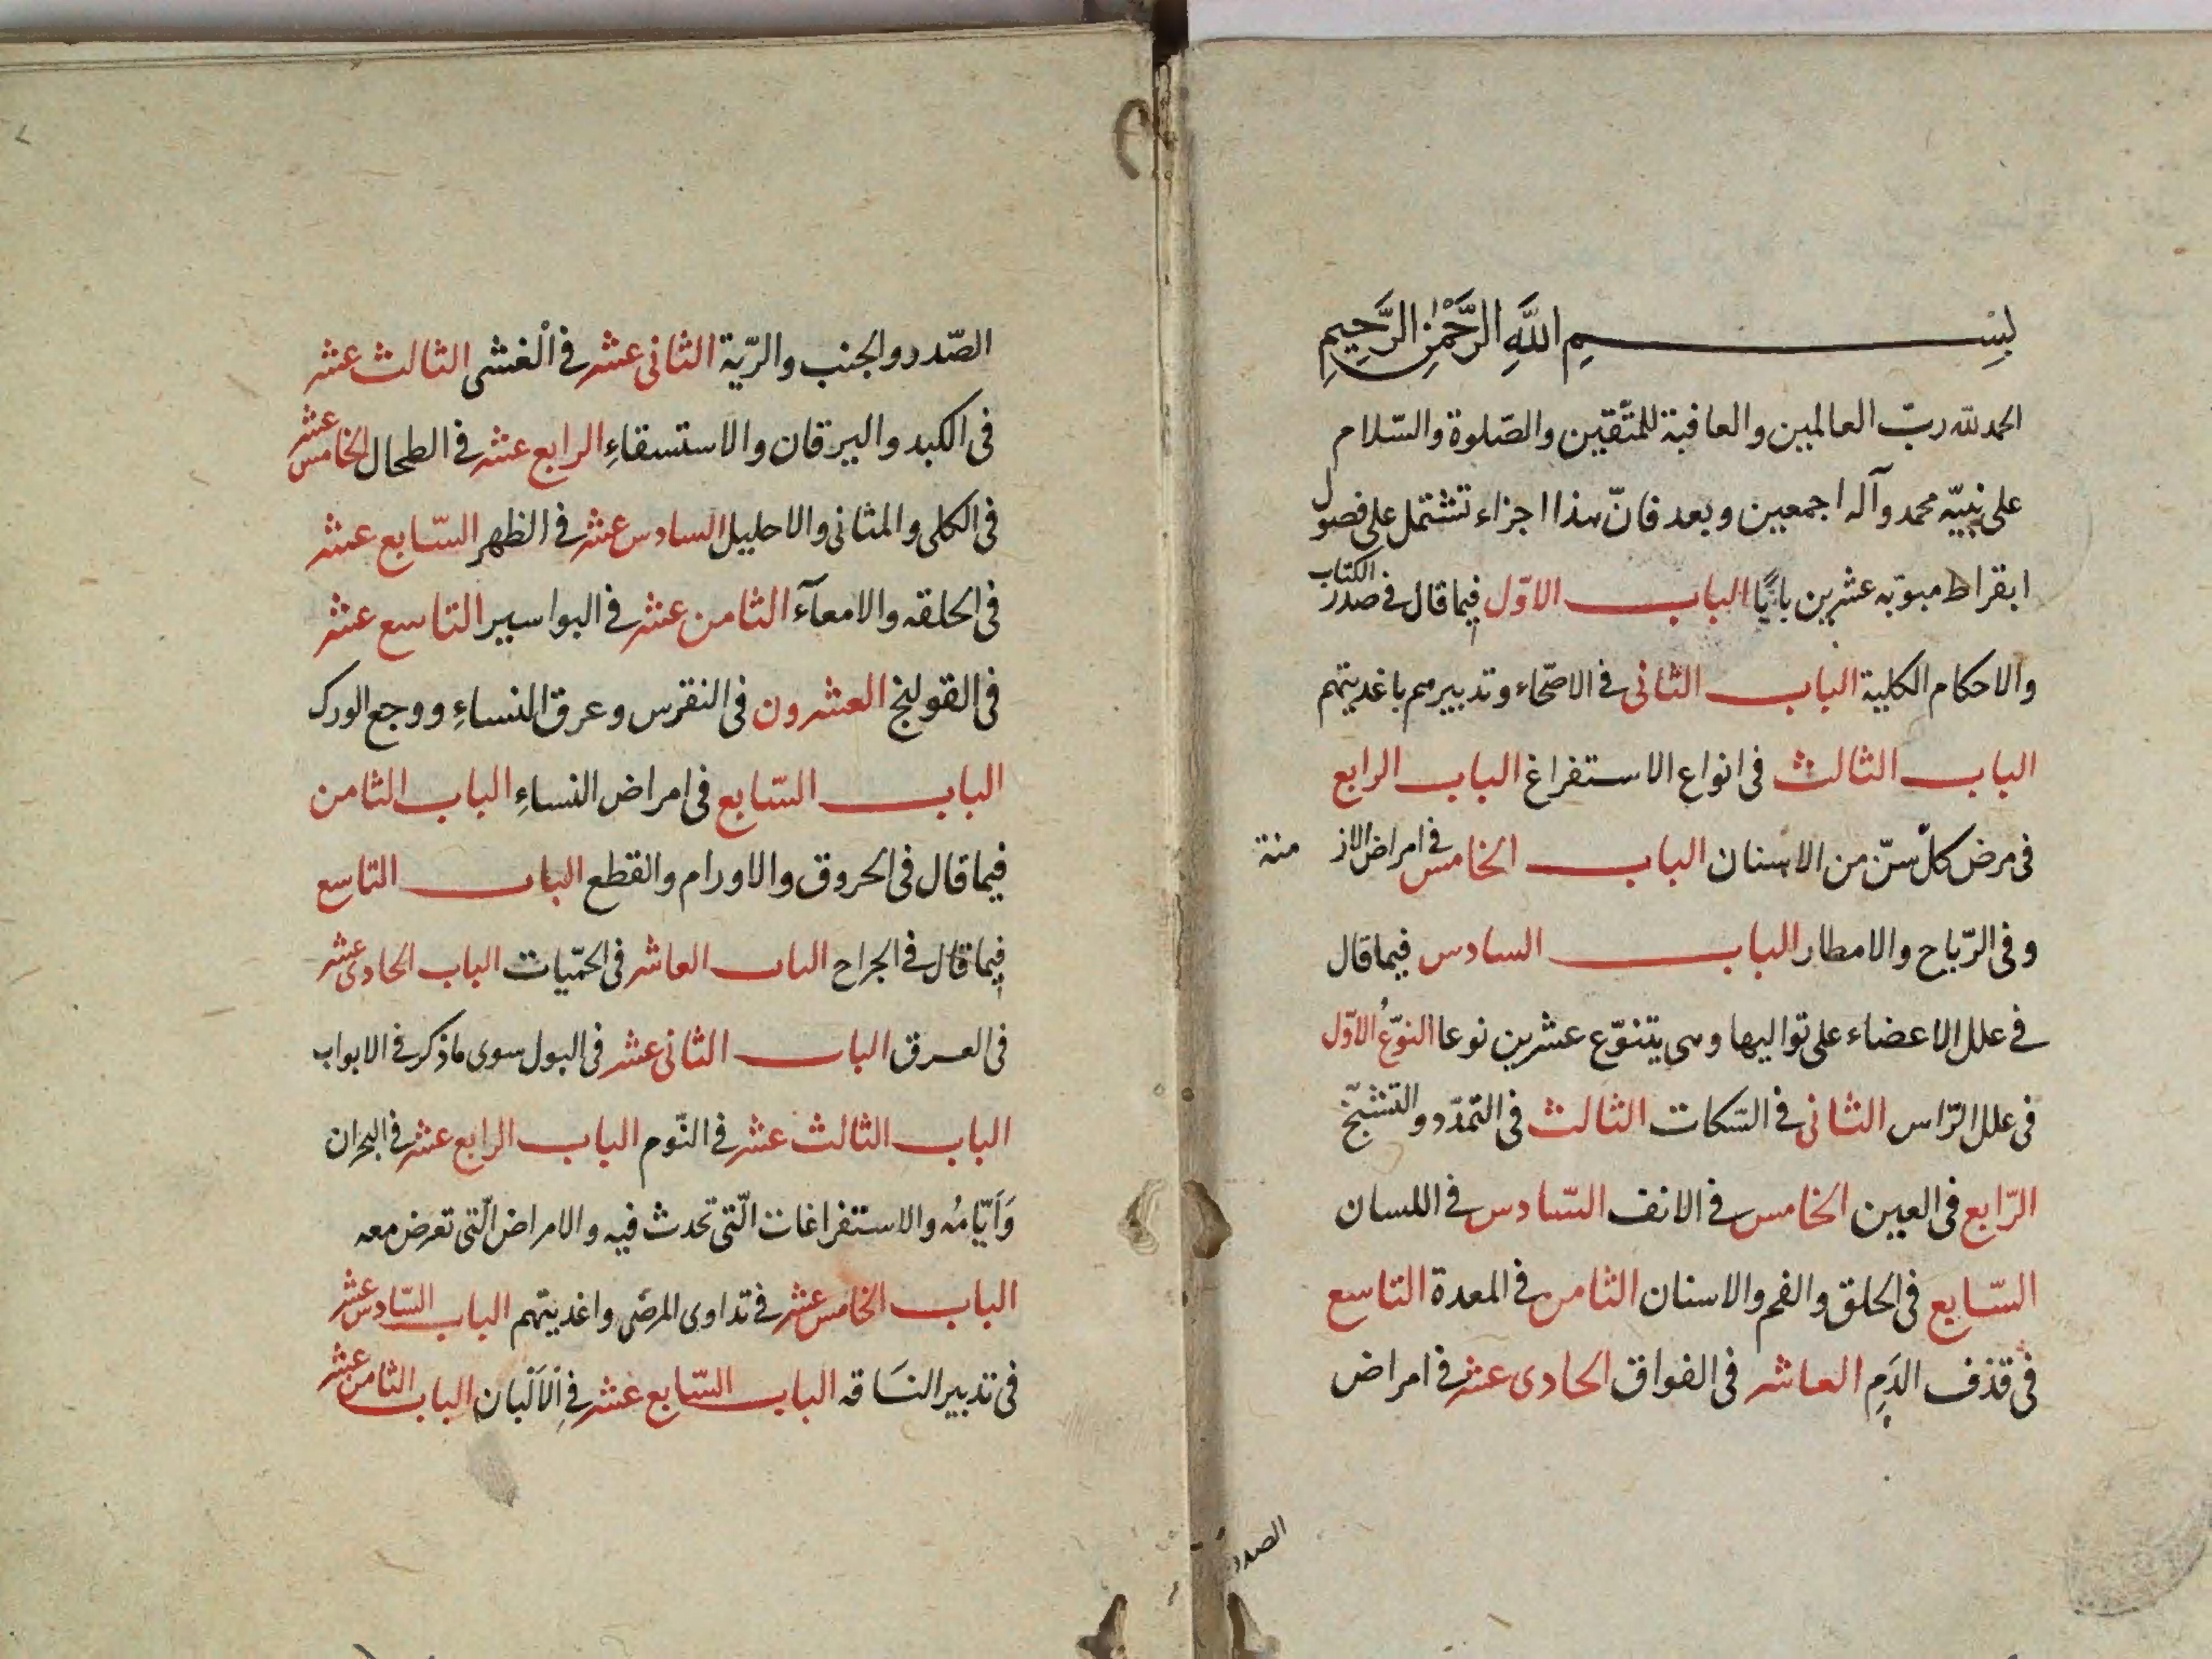 بِسْمِ اللَّهِ الرَّحْمٰنِ الرَّحِيمِ
الحمد لله ربّ العالمين والعاقبة للمتّقين والصّلوة والسّلام
على نبيّه محمد وآله اجمعين وبعد فانّ هذا اجزاء تشتمل على فصول
ابقراط مبوّبه عشرين بابًا الباب الاوّل فيما قال فى صدر الكتاب
والاحكام الكلية الباب الثانى فى الاصّحاء وتدبيرهم باغديتهم
الباب الثالث فى انواع الاستفراغ الباب الرابع
فى مرض كلّ سنّ من الاسنان الباب الخامس فى امراض الاز منة
وفى الرّياح والامطار الباب السادس فيما قال
فى علل الاعضاء على تواليها وهى يتنوّع عشرين نوعا النوّعُ الاوّل
فى علل الرّاس الثانى فى السّكات الثالث فى التمدّد والتشنّج
الرّابع فى العين الخامس فى الانف السّادس فى اللسان
السّابع فى الحلق والفم والاسنان الثامن فى المعدة التاسع
فى قذف الدَمِ العاشر فى الفواق الحادى عشر فى امراض
الصدر
الصّدر والجنب والرّية الثانى عشر فى الْغشى الثالث عشر
فى الكبد واليرقان والاستسقاءِ الرابع عشر فى الطحال الخامس عشر
فى الكلى والمثانى والاحليل السادس عشر فى الظهر السّابع عشر
فى الحلقه والامعآء الثامن عشر فى البواسير التاسع عشر
فى القولنج العشرون فى النقرس وعرق النساءِ ووجع الورك
الباب السّابع فى امراض النساءِ الباب الثامن
فيما قال فى الحروق والاورام والقطع الباب التاسع
فيما قال فى الجراح الباب العاشر فى الحمّيات الباب الحادى عشر
فى العرق الباب الثانى عشر فى البول سوى ما ذكر فى الابواب
الباب الثالث عشر فى النّوم الباب الرابع عشر فى البحران
وَاَيّامُه والاستفراغات الّتى تحدث فيه والامراض الّتى تعرض معه
الباب الخامس عشر فى تداوى المرضى واغديتهم الباب السّادس عشر
فى تدبير النَاقه الباب السّابع عشر فى الْاَلْبان الباب الثامن عشر